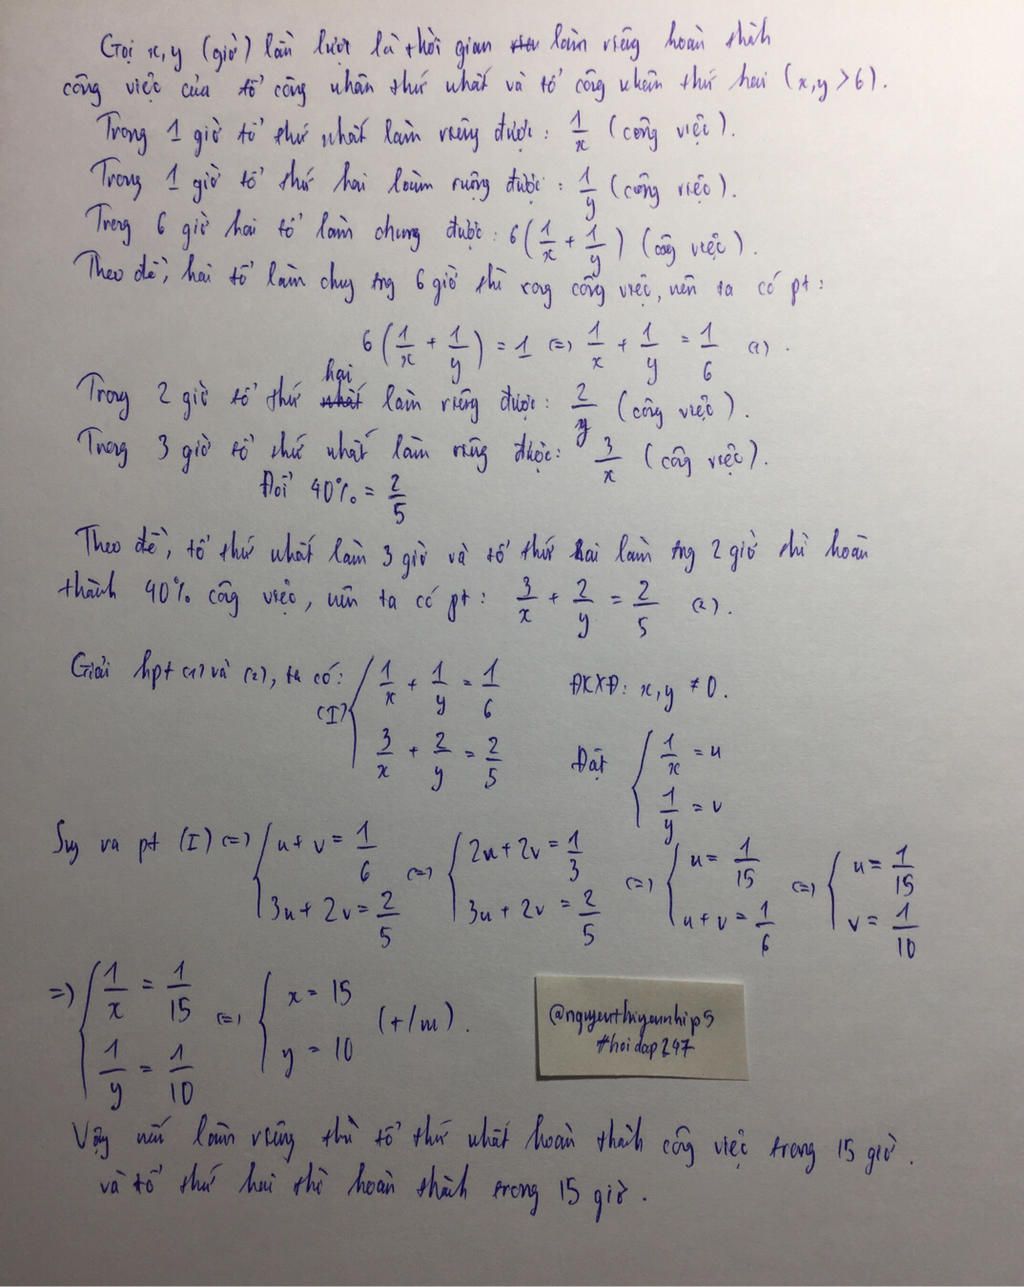 Gọi x, y (giờ) lần lượt là thời gian làm riêng hoàn thành
công việc của tổ công nhân thứ nhất và tổ công nhân thứ hai (x, y > 6).
Trong 1 giờ tổ thứ nhất làm riêng được: 1/x (công việc).
Trong 1 giờ tổ thứ hai làm riêng được: 1/y (công việc).
Trong 6 giờ hai tổ làm chung được: 6(1/x + 1/y) (công việc).
Theo đề, hai tổ làm chung trg 6 giờ thì xong công việc, nên ta có pt:
6(1/x + 1/y) = 1 <=> 1/x + 1/y = 1/6 (1).
Trong 2 giờ tổ thứ hai làm riêng được: 2/y (công việc).
Trong 3 giờ tổ thứ nhất làm riêng được: 3/x (công việc).
Đổi 40% = 2/5
Theo đề, tổ thứ nhất làm 3 giờ và tổ thứ hai làm trg 2 giờ thì hoàn
thành 40% công việc, nên ta có pt: 3/x + 2/y = 2/5 (2).
Giải hpt (1) và (2), ta có: (I) { 1/x + 1/y = 1/6 ĐKXĐ: x, y ≠ 0.
3/x + 2/y = 2/5 Đặt { 1/x = u
1/y = v
Suy ra pt (I) <=> { u + v = 1/6 <=> { 2u + 2v = 1/3 <=> { u = 1/15 <=> { u = 1/15
3u + 2v = 2/5 3u + 2v = 2/5 u + v = 1/6 v = 1/10
=> { 1/x = 1/15 <=> { x = 15 (t/m).
1/y = 1/10 y = 10
@nguyenthiyennhip5
#hoidap247
Vậy nếu làm riêng thì tổ thứ nhất hoàn thành công việc trong 15 giờ.
và tổ thứ hai thì hoàn thành trong 15 giờ.